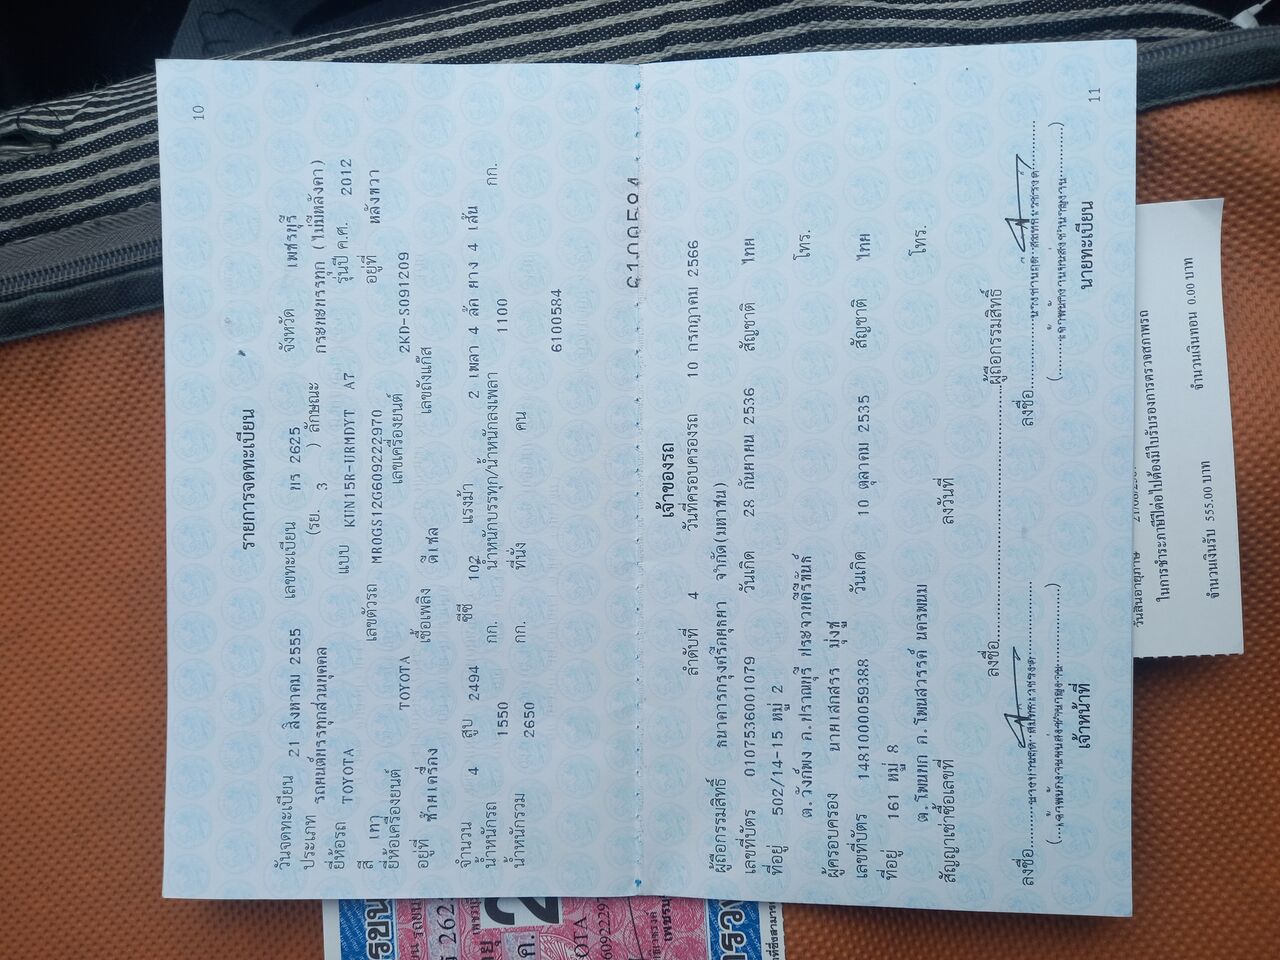 10
รายการจดทะเบียน
วันจดทะเบียน 21 สิงหาคม 2555 เลขทะเบียน 2625 จังหวัด เพชรบุรี
ประเภท รถยนต์บรรทุกส่วนบุคคล (รย. 3 ) ลักษณะ กระบะบรรทุก (ไม่มีหลังคา)
ยี่ห้อรถ TOYOTA แบบ KUN15R-URMDYT A7 รุ่นปี ค.ศ. 2012
สี เทา เลขตัวรถ MR0GS12G609222970 อยู่ที่ หลังขวา
ยี่ห้อเครื่องยนต์ TOYOTA เลขเครื่องยนต์ 2KD-S091209
อยู่ที่ ซ้ายเครื่อง เชื้อเพลิง ดีเซล เลขถังแก๊ส
จำนวน 4 สูบ 2494 ซีซี 102 แรงม้า 2 เพลา 4 ล้อ ยาง 4 เส้น
น้ำหนักรถ 1550 กก. น้ำหนักบรรทุก/น้ำหนักลงเพลา 1100 กก.
น้ำหนักรวม 2650 กก. ที่นั่ง คน
6100584
6100584
11
เจ้าของรถ
ลำดับที่ 4 วันที่ครอบครองรถ 10 กรกฎาคม 2566
ผู้ถือกรรมสิทธิ์ ธนาคารกรุงศรีอยุธยา จำกัด(มหาชน)
เลขที่บัตร 0107536001079 วันเกิด 28 กันยายน 2536 สัญชาติ ไทย
ที่อยู่ 502/14-15 หมู่ 2
ต.วังก์พง อ.ปราณบุรี ประจวบคีรีขันธ์ โทร.
ผู้ครอบครอง นายเสกสรร มุ่งชู
เลขที่บัตร 1481000059388 วันเกิด 10 ตุลาคม 2535 สัญชาติ ไทย
ที่อยู่ 161 หมู่ 8
ต.โพนบก อ.โพนสวรรค์ นครพนม โทร.
สัญญาเช่าซื้อเลขที่ ลงวันที่
ลงชื่อ ผู้ถือกรรมสิทธิ์
ลงชื่อ ลงชื่อ
(เจ้าพนักงานขนส่งชำนาญงาน) (เจ้าพนักงานขนส่งชำนาญงาน)
เจ้าหน้าที่ นายทะเบียน
วันสิ้นอายุภาษี
ในการชำระภาษีปีต่อไปต้องมีใบรับรองการตรวจสภาพรถ
จำนวนเงินรับ 555.00 บาท จำนวนเงินทอน 0.00 บาท